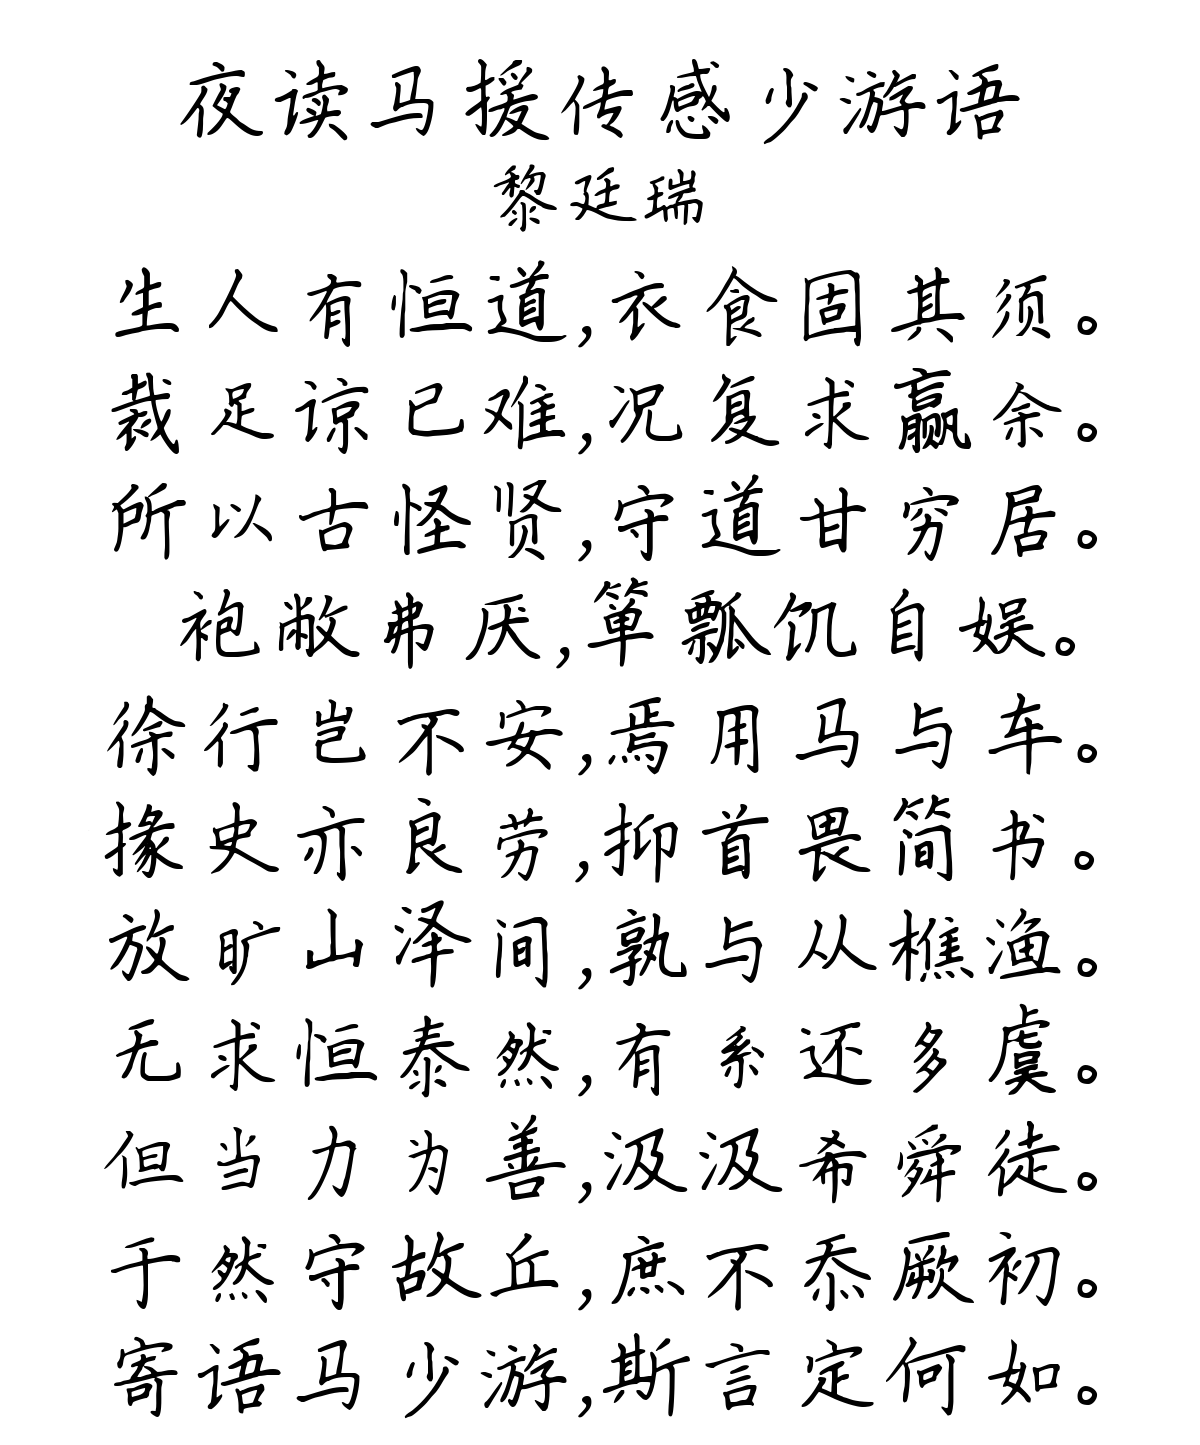 夜读马援传感少游语
黎廷瑞
生人有恒道,衣食固其须。
裁足谅已难,况复求赢余。
所以古怪贤,守道甘穷居。
袍敝弗厌,箪瓢饥自娱。
徐行岂不安,焉用马与车。
掾史亦良劳,抑首畏简书。
放旷山泽间,孰与从樵渔。
无求恒泰然,有系还多虞。
但当力为善,汲汲希舜徒。
于然守故丘,庶不忝厥初。
寄语马少游,斯言定何如。